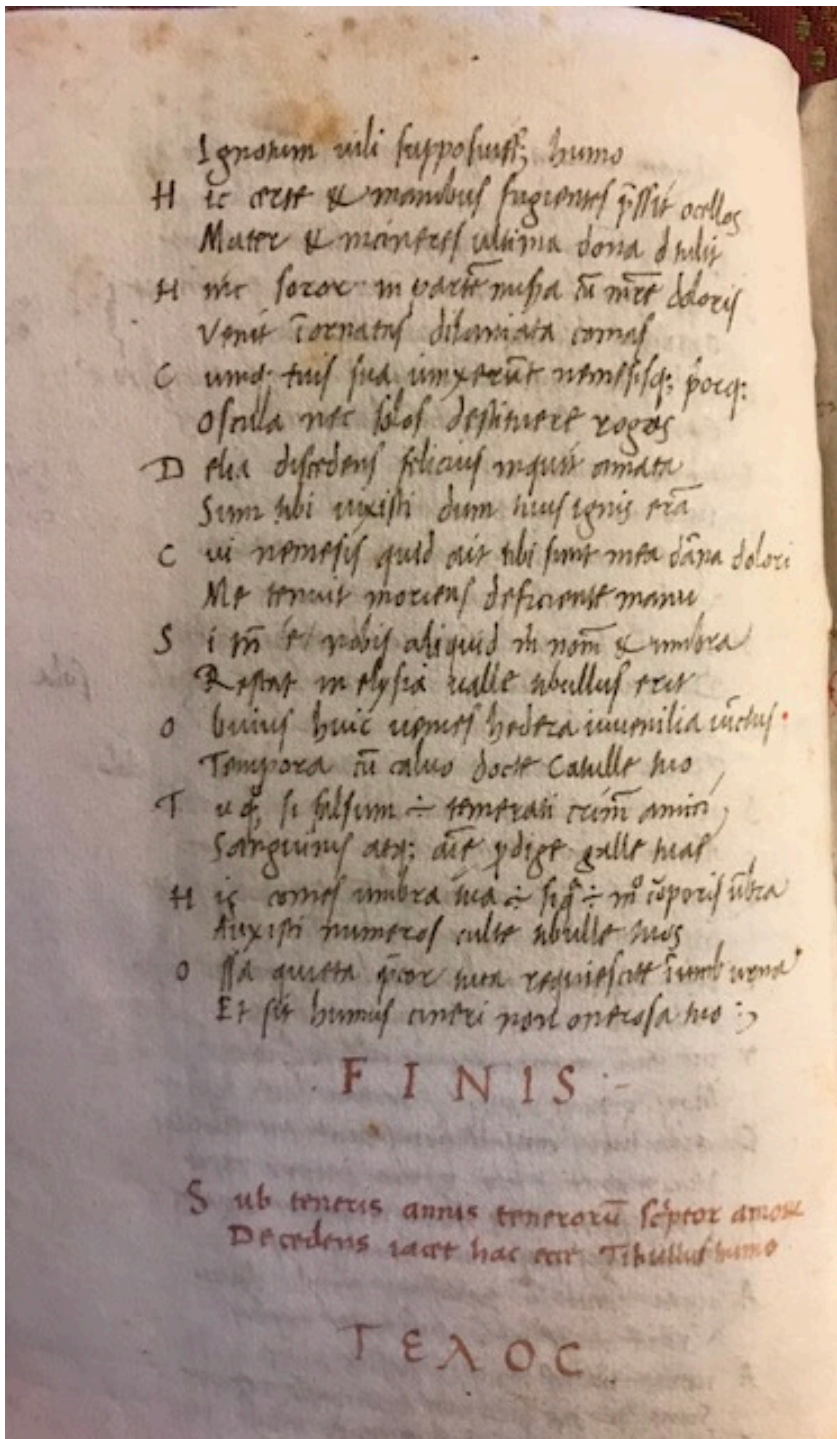 Ignotum uili supposuiss; humo
H ic certe & manibus fugientes p̄ssit ocellos
Mater & incineres ultima dona d tulit
H inc soror in partē missa cū mr̄e doloris
Venit īornatas dilaniata comas
C umq; tuis sua iunxerūt nemesisq; p̄orq;
Oscula nec solos destituere rogos
D elia discedens felicius inquit amata
Sum tibi uixisti dum tuus ignis erā
C ui nemesis quid ait tibi sunt mea dāna dolori
Me tenuit moriens deficiente manu
S i tn̄ e nobis aliquid ni nom̄ & umbra
Restat in elysia ualle tibullus erit
O buius huic uenies hedera iuuenilia uīctus
Tempora cū caluo docte Catulle tuo
T u q; si falsum ÷ temerati crim̄ amici
Sanguinis atq; aīe prdige galle tuae
H is comes umbra tua ÷ siq̄ ÷ mo cōporis ūbra
Auxisti numeros culte tibulle tuos
O ssa quieta p̄cor tuta requiescite urna
Et sit humus cineri non onerosa tuo :,
FINIS
S ub teneris annis tenerorū sc̄ptor amor
Decedens iacet hac ecce Tibullus humo
ΤΕΛΟC